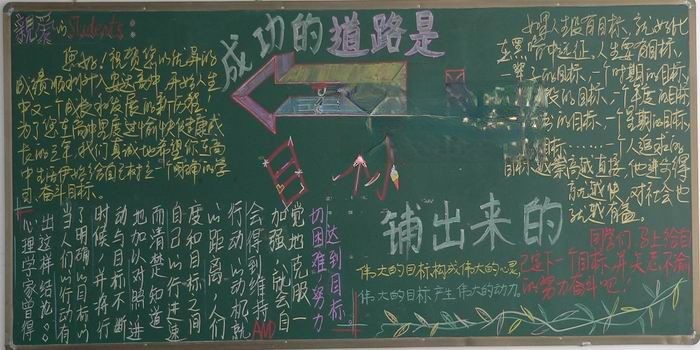 亲爱的Students:
您好!祝贺您以优异的
成绩顺利升入实达高中,开始人生
中又一个成长和发展的新历程。
为了您在高中里度过愉快健康成
长的三年,我们真诚地希望你在高
中生活伊始给自己树立一个明确的学
习、奋斗目标。
成功的道路是
目
铺出来的
如果人生没有目标,就好比
在黑暗中远征,人生要有目标,
一辈子的目标,一个时期的目标,
的目标,一个年度的目标
的目标,一个星期的目标
目标……一个人追求的
目标越崇高越直接,他进步得
就越快,对社会也
就越有益。
同学们,马上给自
己定下一个目标,并矢志不渝
的努力奋斗吧!
伟大的目标构成伟大的心灵,
伟大的目标产生伟大的动力。
心理学家曾得
出这样结论:
当人们的行动有
了明确的目标的
时候,并将行
动与目标不断
地加以对照,进
而清楚知道
自己的行进速
度和目标之间
的距离,人们
行动的动机就
会得到维持
加强,就会自
觉地克服一
切困难,努力
达到目标
AND